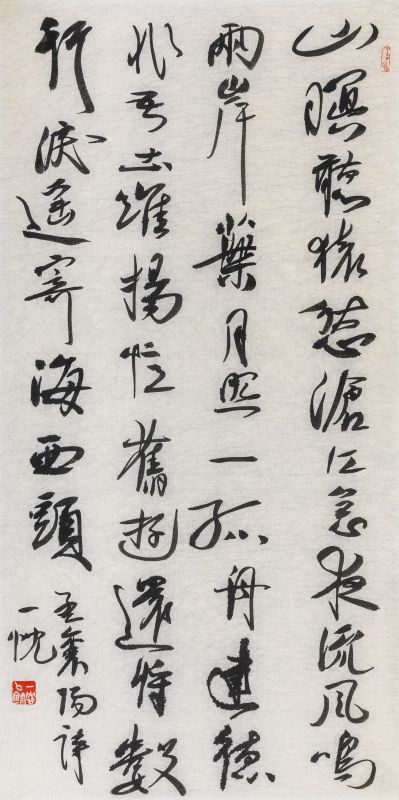 山暝聽猿愁滄江急夜流風鳴
兩岸葉月照一孤舟建德
非吾土維揚憶舊遊還將數
行淚遙寄海西頭
孟襄陽詩
一忱